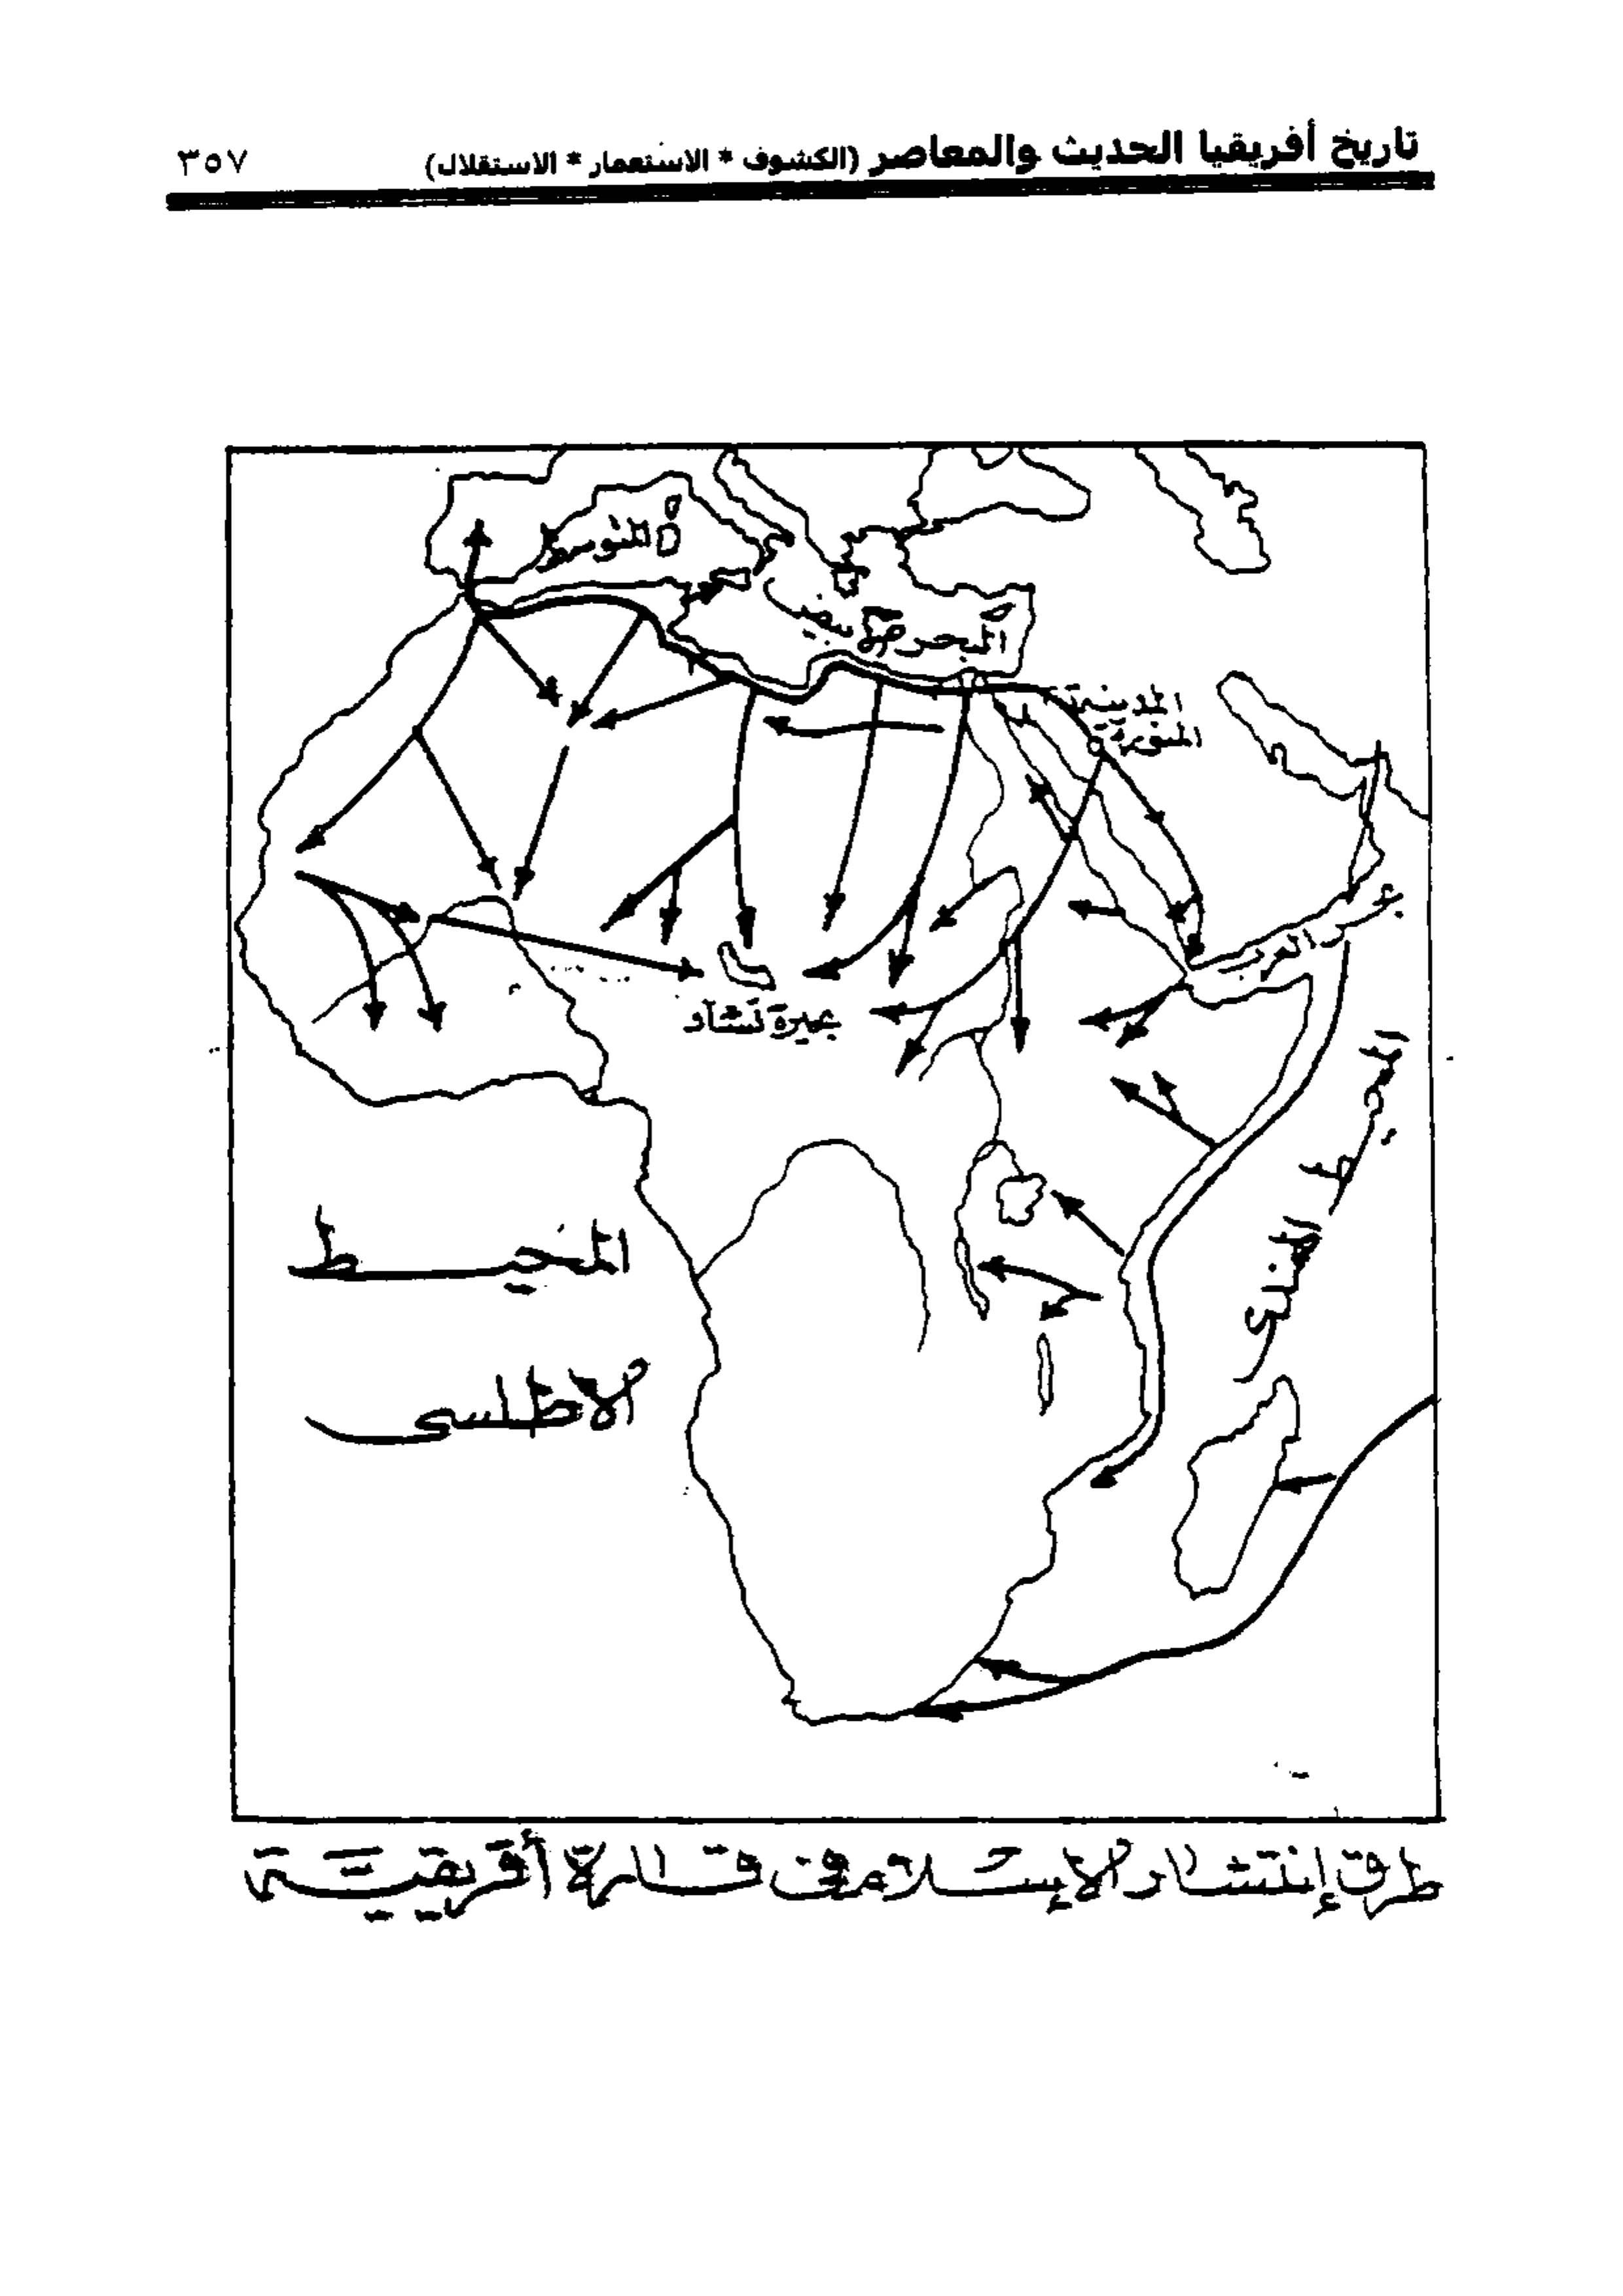 تاريخ أفريقيا الحديث والمعاصر (الكشوف * الاستعمار * الاستقلال) ٣٥٧
البحر الأبيض
المتوسط
المدينة
المنورة
بحر العرب
بحيرة تشاد
المحيط
الهندى
المحيط
الأطلسى
طرق إنتشار الإسلام فى قارة أفريقيية